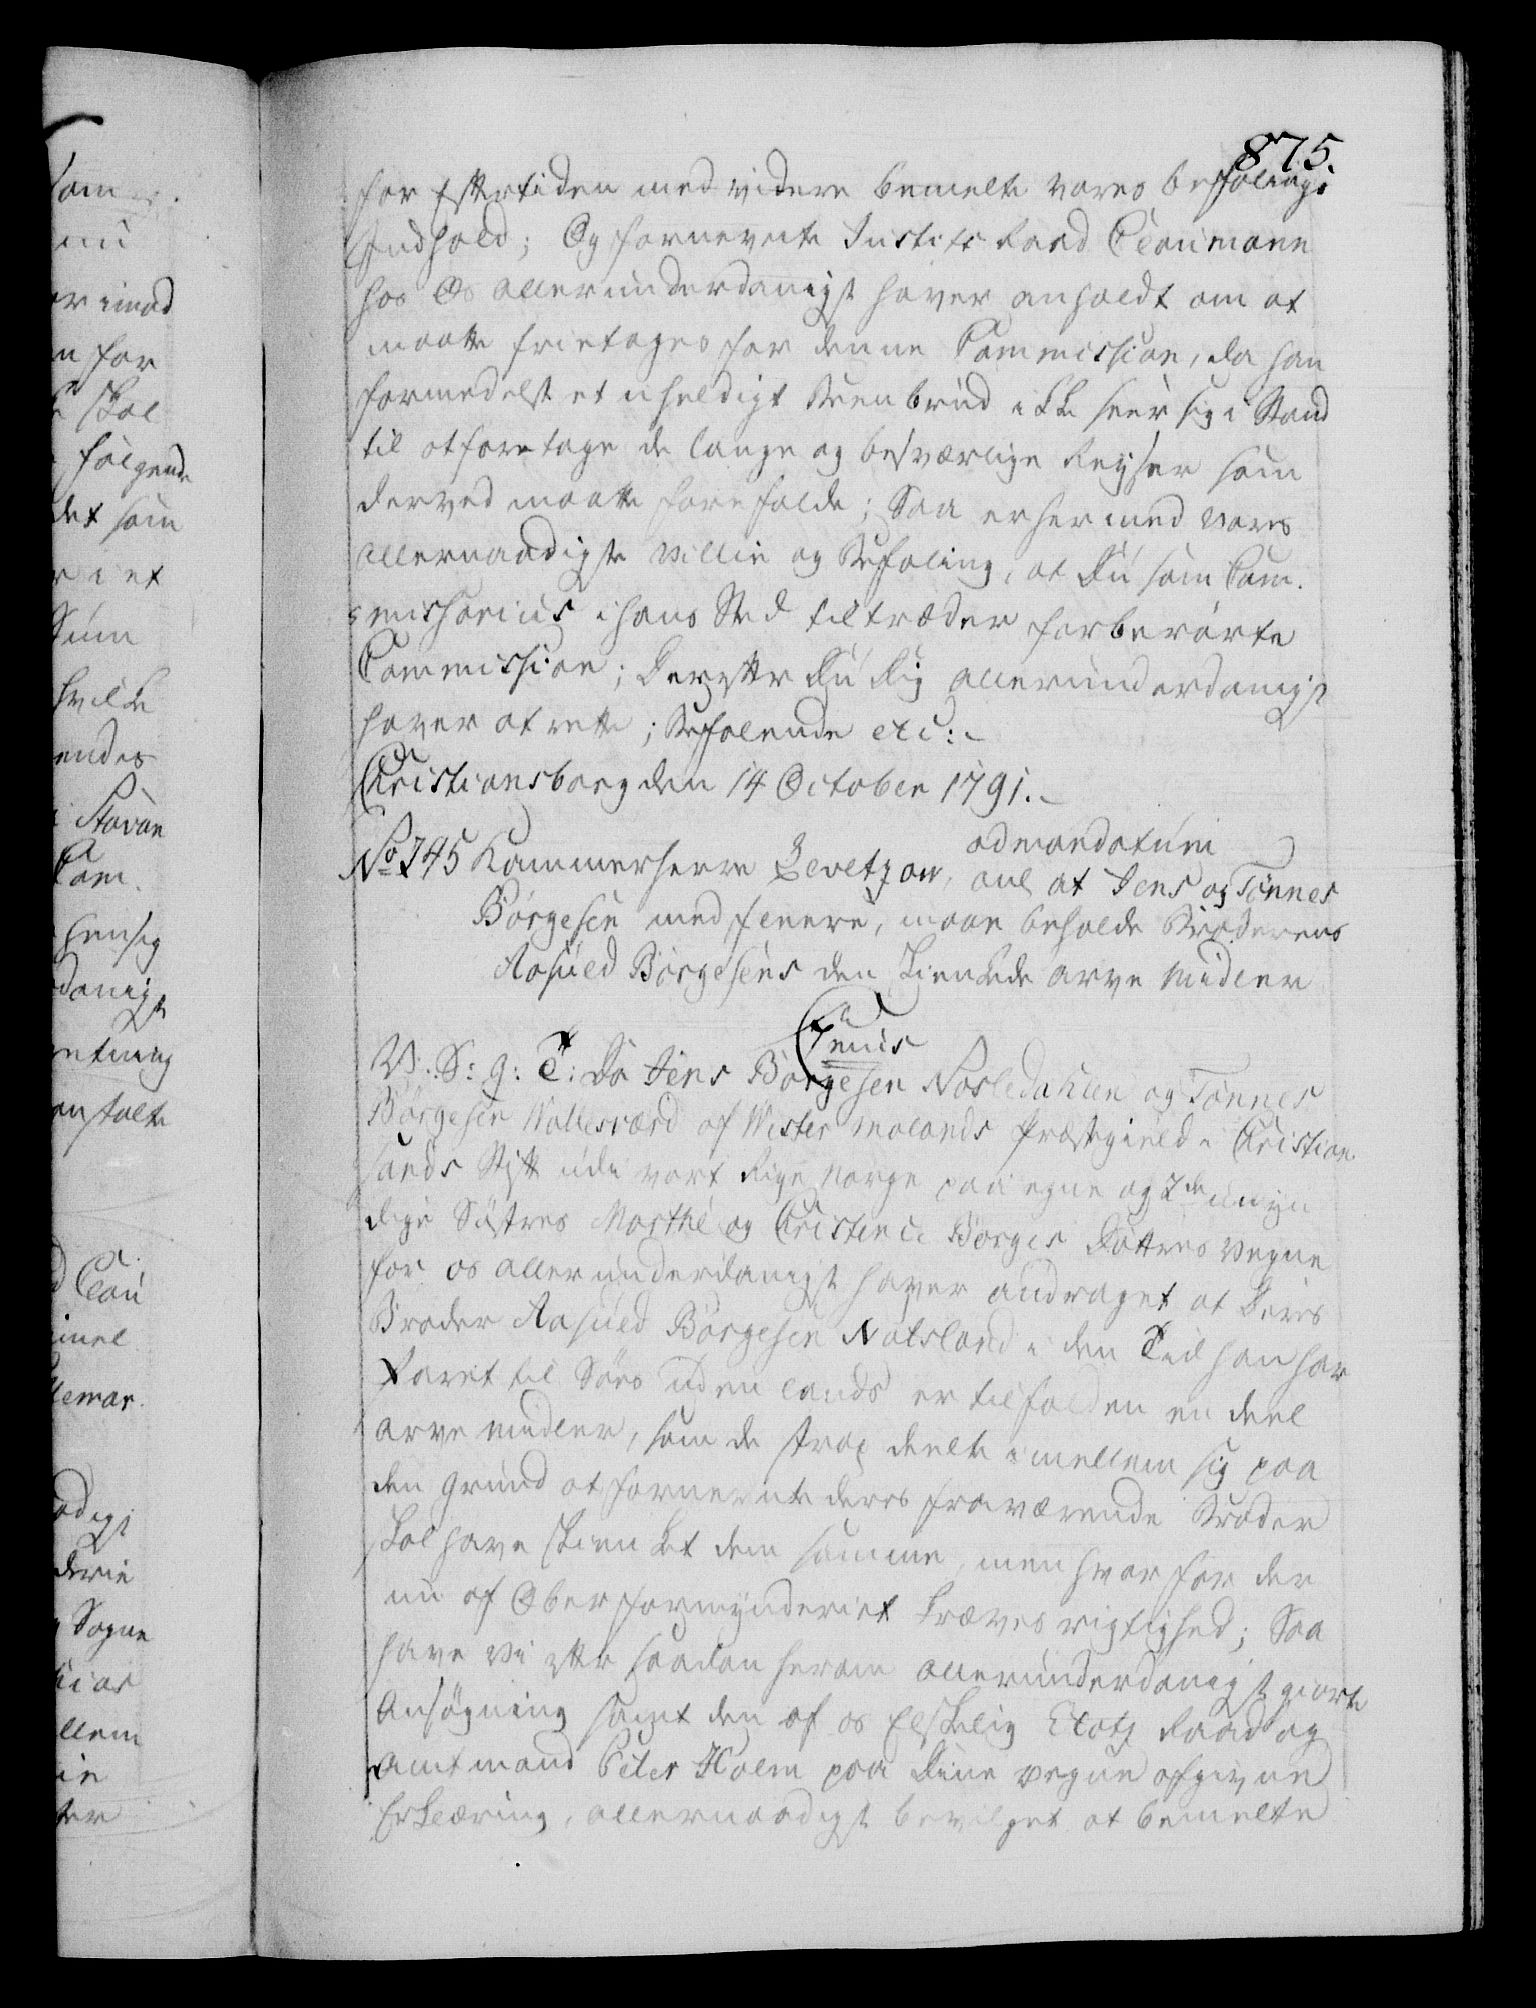 875.
for Eftertiden med videre bemelte vores befalings
Indhold; Og fornevnte Justits Raad Claumann
hos Os allerunderdanigst haver anholdt om at
maatte frietages for denne Commission, da han
formedelst et uheldigt Beenbrud ikke seer sig i Stand
til at foretage de lange og besværlige Reyser som
derved maatte forefalde; Saa er hermed vores
allernaadigste Villie og Befaling, at Du som Com-
missarius i hans Sted tiltræder forberørte
Commission; Derefter Du dig allerunderdanigst
haver at rette; Befalende etc:
Christiansborg den 14 October 1791.
ad mandatum
No 745 Kammerherre Levetzow, anl at Jens og Tønnes
Børgesen med fleere, maae beholde Broderens
Aasuled Børgesens dem skienkede arve Midler
C 7mis
V: S: g: T: Da Jens Børgesen Nosledahlen og Tønnes
Børgesen Wallesværd af Wester Molands Præstegield i Christian
sands Stift udi vort Rige Norge paa egne og 2de umyn
dige Søstres Marthe og Christence Børges Døttres vegne
for os allerunderdanigst haver andraget at Deres
Broder Aasuled Børgesen Natsland i den Tid han har
faret til Søes udenlands er tilfalden en deel
arve midler, som de strax deelte imellem sig paa
den Grund at fornevnte deres fraværende Broder
skal have skienket dem samme, men hvorfor der
nu af Oberformynderiet kræves rigtighed; Saa
have Vi efter saadan herom allerunderdanigst giorte
Ansøgning samt den af os Elskelig Etatz Raad og
Amtmand Peter Holm paa Dine vegne afgivne
Erklæring, allernaadigst bevilget at bemelte